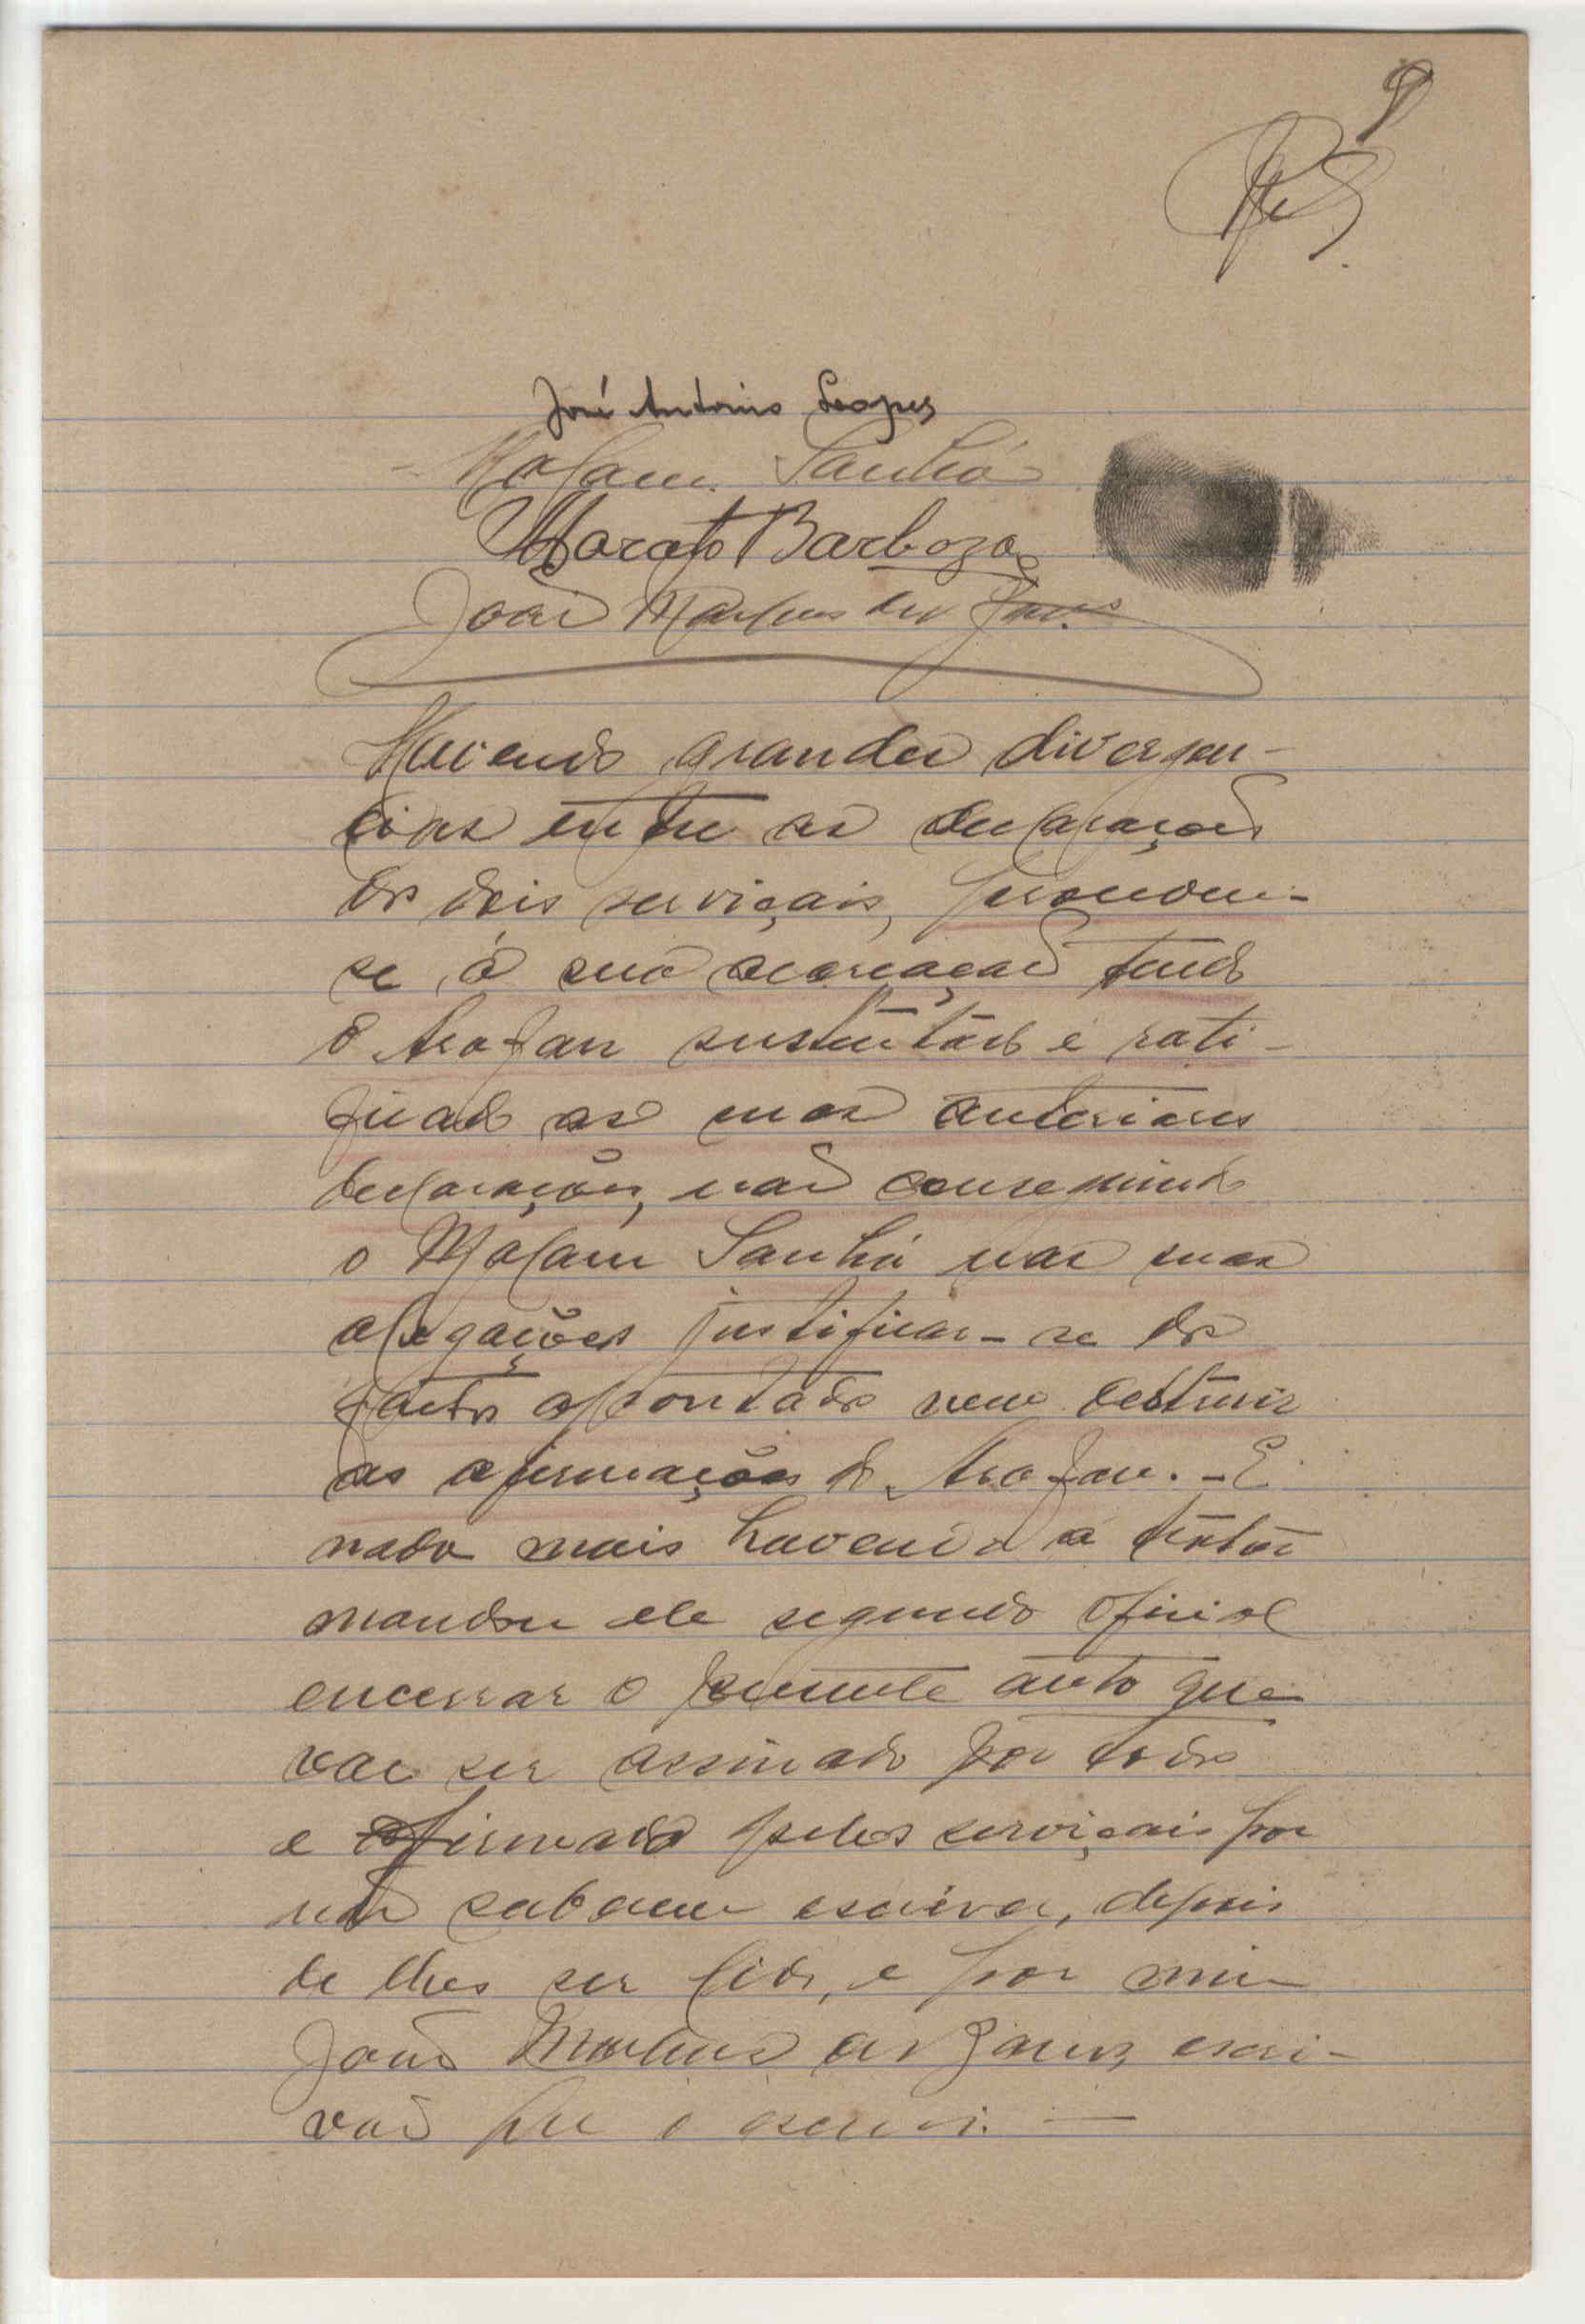 José Antonio Leopes
Malam Sanhá
Morato Barboza
João Martins
Havendo grandes divergen-
cias entre as declarações
dos dois serviçais, procedeu-
se á sua acareação tendo
o Arafan sustentado e rati-
ficado as suas anteriores
declarações, não conseguindo
o Malam Sanhá nas suas
alegações justificar-se dos
factos apontados nem destruir
as afirmações do Arafan. - E
nada mais havendo a tratar
mandou ele segundo oficial
encerrar o presente auto que
vae ser assinado por todos
e firmado pelos serviçais por
não saberem escrever, depois
de lhes ser lido, e por mim
João Martins escri-
vão que o escrevi. —